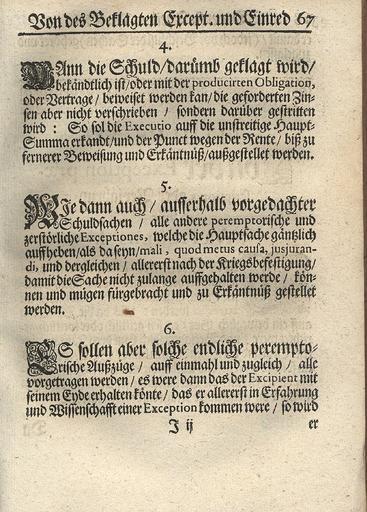 Von des Beklagten Except. und Einred 67
4.
WAnn die Schuld/darümb geklagt wird/
bekändtlich ist/oder mit der producirten Obligation,
oder Vertrage/ beweiset werden kan/die geforderten Zin-
sen aber nicht verschrieben / sondern darüber gestritten
wird : So sol die Executio auff die unstreitige Haupt-
Summa erkandt/und der Punct wegen der Rente/ biß zu
fernerer Beweisung und Erkäntnüß/außgestellet werden.
5.
WJe dann auch / ausserhalb vorgedachter
Schuldsachen / alle andere peremptorische und
zerstörliche Exceptiones, welche die Hauptsache gäntzlich
auffheben/als da seyn/mali, quod metus causa, jusjuran-
di, und dergleichen / allererst nach der Kriegsbefestigung/
damit die Sache nicht zulange auffgehalten werde / kön-
nen und mügen fürgebracht und zu Erkäntnüß gestellet
werden.
6.
ES sollen aber solche endliche perempto-
rische Außzüge / auff einmahl und zugleich / alle
vorgetragen werden / es were dann das der Excipient mit
seinem Eyde erhalten könte / das er allererst in Erfahrung
und Wissenschafft einer Exception kommen were / so wird
J ij er